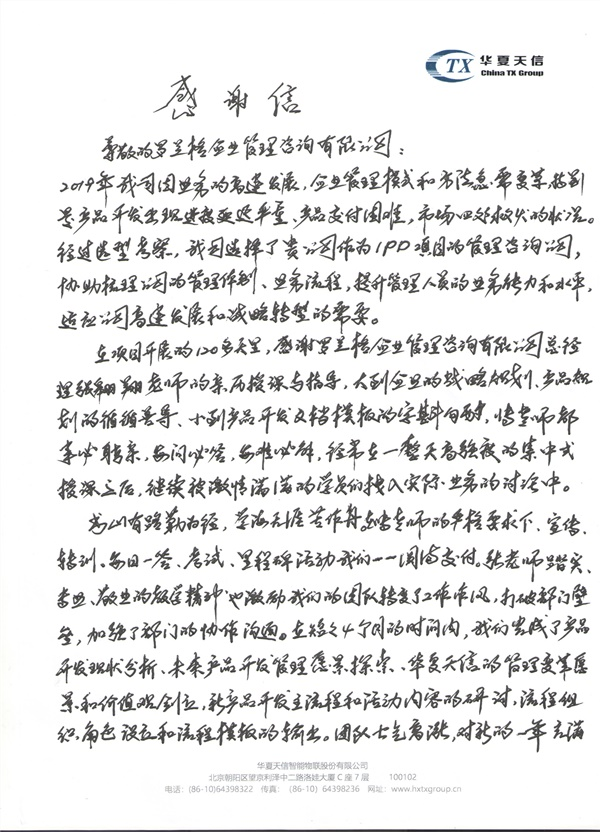 华夏天信
TX
China TX Group
感谢信
尊敬的罗兰格企业管理咨询有限公司:
2019年我司因业务的高速发展,企业管理模式和方法急需变革,特别
是产品开发出现进度延迟严重、产品交付困难,市场四处救火的状况。
经过选型考察,我司选择了贵公司作为IPD项目的管理咨询公司,
协助梳理公司的管理体制、业务流程,提升管理人员的业务能力和水平,
适应公司高速发展和战略转型的需要。
在项目开展的120多天里,感谢罗兰格企业管理咨询有限公司总经
理张翱翔老师的亲历授课与指导,大到企业的战略规划、产品规
划的循循善导、小到产品开发文档模板的字斟句酌,张老师都
事必躬亲,每问必答,每难必解,经常在一整天高强度的集中式
授课之后,继续被激情满满的学员们拽入实际业务的讨论中。
书山有路勤为径,学海无涯苦作舟,在张老师的严格要求下、宣传、
转训、每日一答、考试、里程碑活动我们一一圆满交付。张老师踏实、
专业、敬业的教学精神也激励我们的团队转变了工作作风,打破部门壁
垒,加强了部门的协作沟通。在短短4个月的时间内,我们完成了产品
开发现状分析、未来产品开发管理愿景探索、华夏天信的管理变革愿
景和价值观创立,新产品开发主流程和活动内容的研讨,流程组
织、角色设立和流程模板的输出。团队士气高涨,对新的一年充满
华夏天信智能物联股份有限公司
北京朝阳区望京利泽中二路洛娃大厦C座7层 100102
电话: (86-10)64398322 传真: (86-10) 64398236 网址: www.hxtxgroup.cn